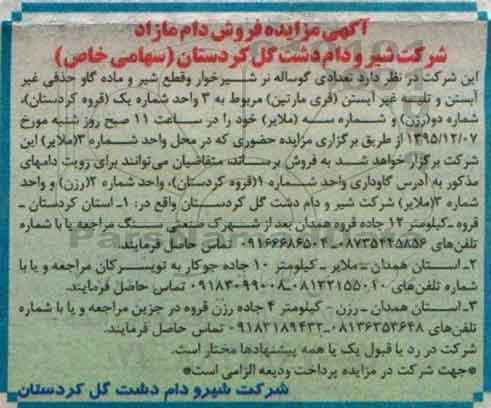 آگهی مزایده فروش دام مازاد
شرکت شیر و دام دشت گل کردستان (سهامی خاص)
این شرکت در نظر دارد تعدادی گوساله نر شیرخوار وقطع شیر و ماده گاو حذفی غیر
آبستن و تلیسه غیر آبستن (فری مارتین) مربوط به ۳ واحد شماره یک (قروه کردستان)،
شماره دو(رزن) و شماره سه (ملایر) خود را در ساعت ۱۱ صبح روز شنبه مورخ
۱۳۹۵/۱۲/۰۷ از طریق برگزاری مزایده حضوری که در محل واحد شماره ۳(ملایر) این
شرکت برگزار خواهد شد به فروش برساند، متقاضیان می‌توانند برای رویت دامهای
مذکور به آدرس گاوداری واحد شماره ۱(قروه کردستان)، واحد شماره ۲(رزن) و واحد
شماره ۳(ملایر) شرکت شیر و دام دشت گل کردستان واقع در: ۱- استان کردستان -
قروه -کیلومتر ۱۲ جاده قروه همدان بعد از شهرک صنعتی سنگ مراجعه یا با شماره
تلفن‌های ۰۸۷۳۵۲۴۵۸۵۶-۰۹۱۶۶۶۸۶۵۰۴ تماس حاصل فرمایند.
۲- استان همدان - ملایر - کیلومتر ۱۰ جاده جوکار به تویسرکان مراجعه و یا با
شماره تلفن‌های ۰۸۱۳۲۲۱۵۵۰۶۰-۰۹۱۸۳۰۹۹۰۰۸ تماس حاصل فرمایند.
۳- استان همدان - رزن - کیلومتر ۴ جاده رزن قروه در جزین مراجعه و یا با شماره
تلفن‌های ۰۸۱۳۶۲۵۳۶۴۸-۰۹۱۸۲۱۸۹۴۳۲ تماس حاصل فرمایند.
شرکت در رد یا قبول یک یا همه پیشنهادها مختار است.
*جهت شرکت در مزایده پرداخت ودیعه الزامی است*
شرکت شیر و دام دشت گل کردستان